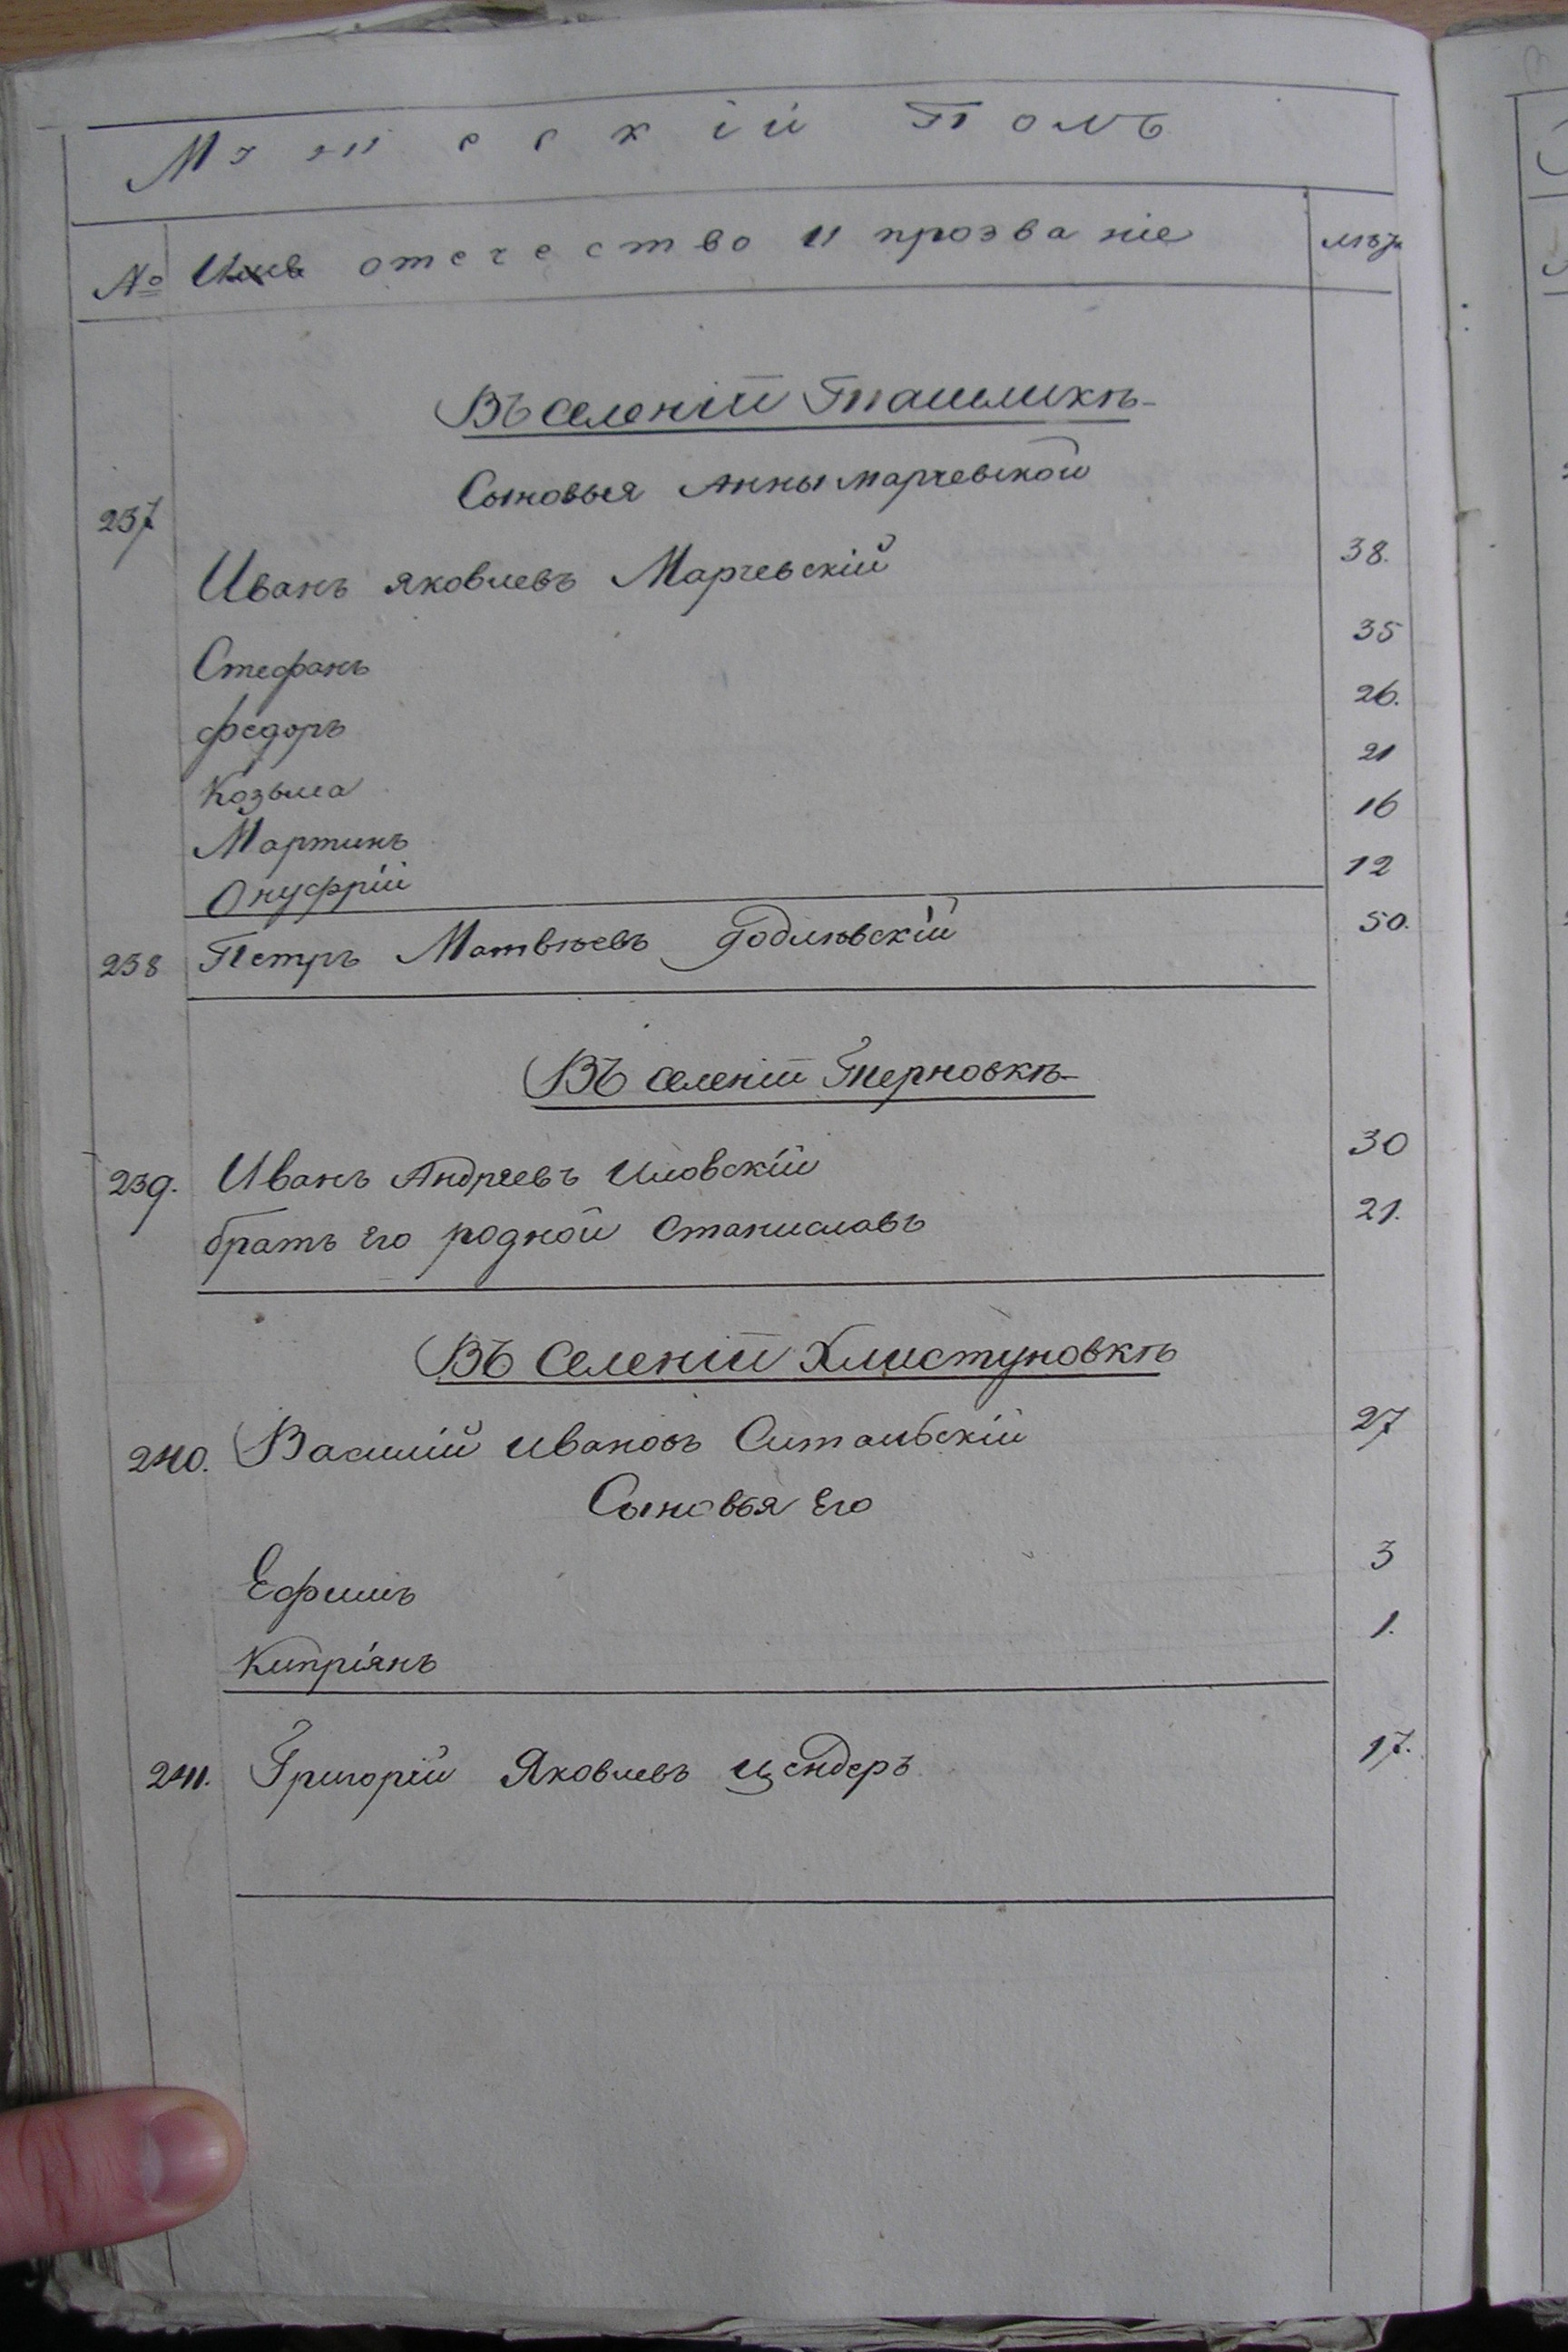 Мужескій Полъ
№ Имя отечество и прозваніе лѣта
Въ селеніи Ташликѣ
237 Сыновья Анны марчевской
Иванъ яковлевъ Марчевскій 38.
Стефанъ 35
федоръ 26.
Козьма 21
Мартинъ 16
Онуфрій 12
238 Петръ Матвѣевъ 50.
Въ селеніи Терновкѣ
239. Иванъ Андреевъ Иловскій 30
братъ Его родной Станиславъ 21.
Въ Селеніи Хлистуновкѣ
240. Василій Ивановъ 27
Сыновья Его
Ефимъ 3
Кипріянъ 1.
241. Григорій Яковлевъ Цендеръ 17.